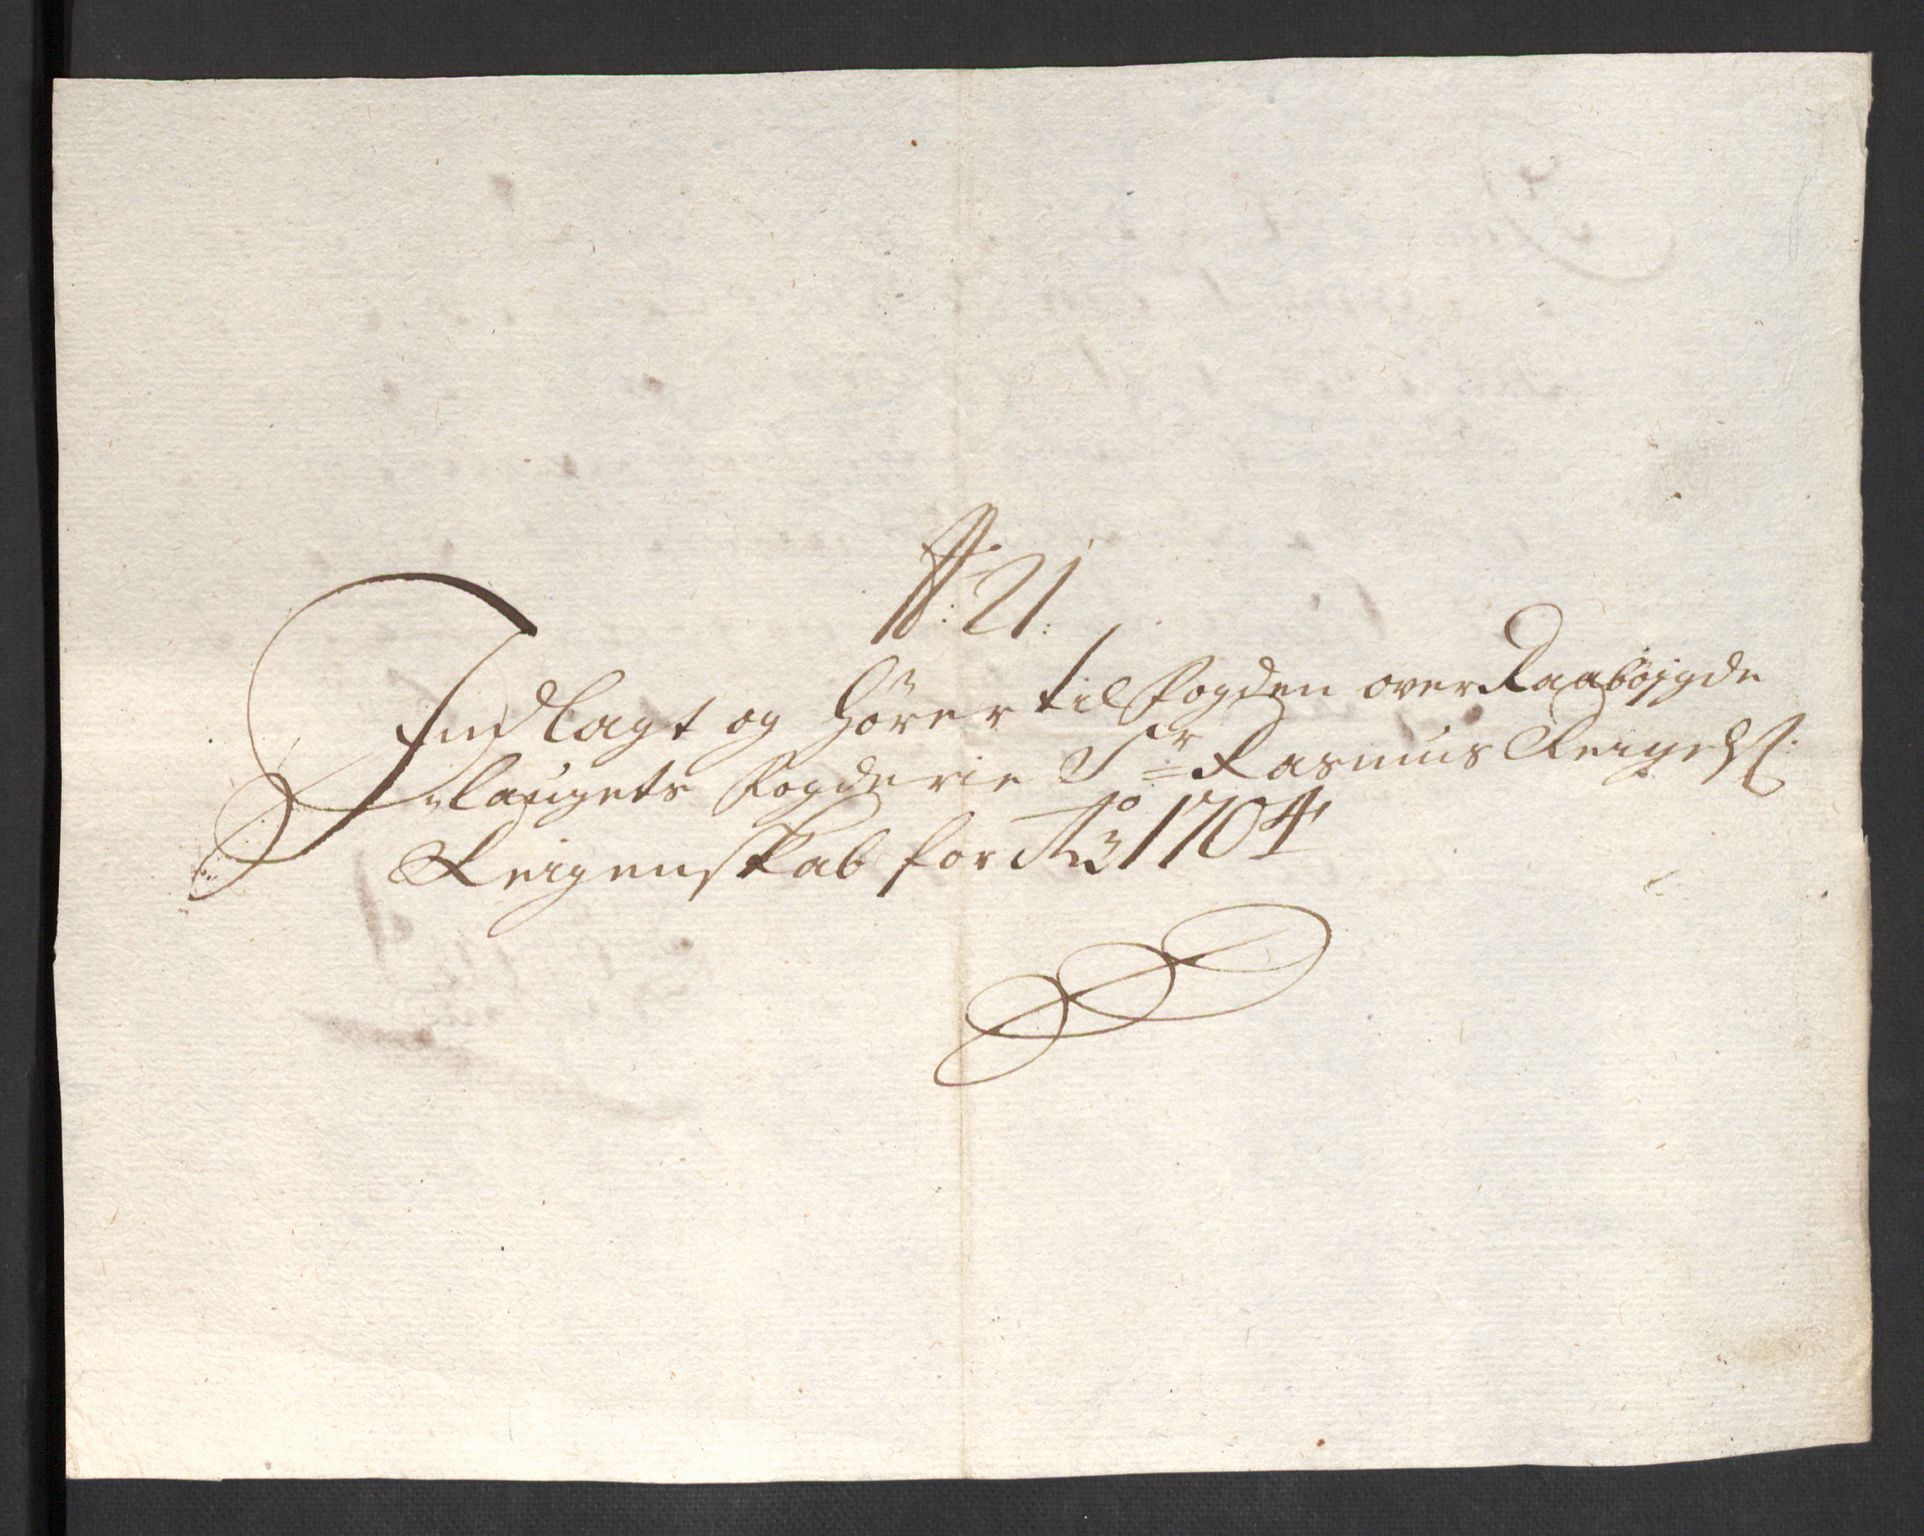 N: 21:
Indlagt og hörer til fogden over Raaböygde
laugets fogderie Sr Rasmus
Reigenskab for Ao 1704